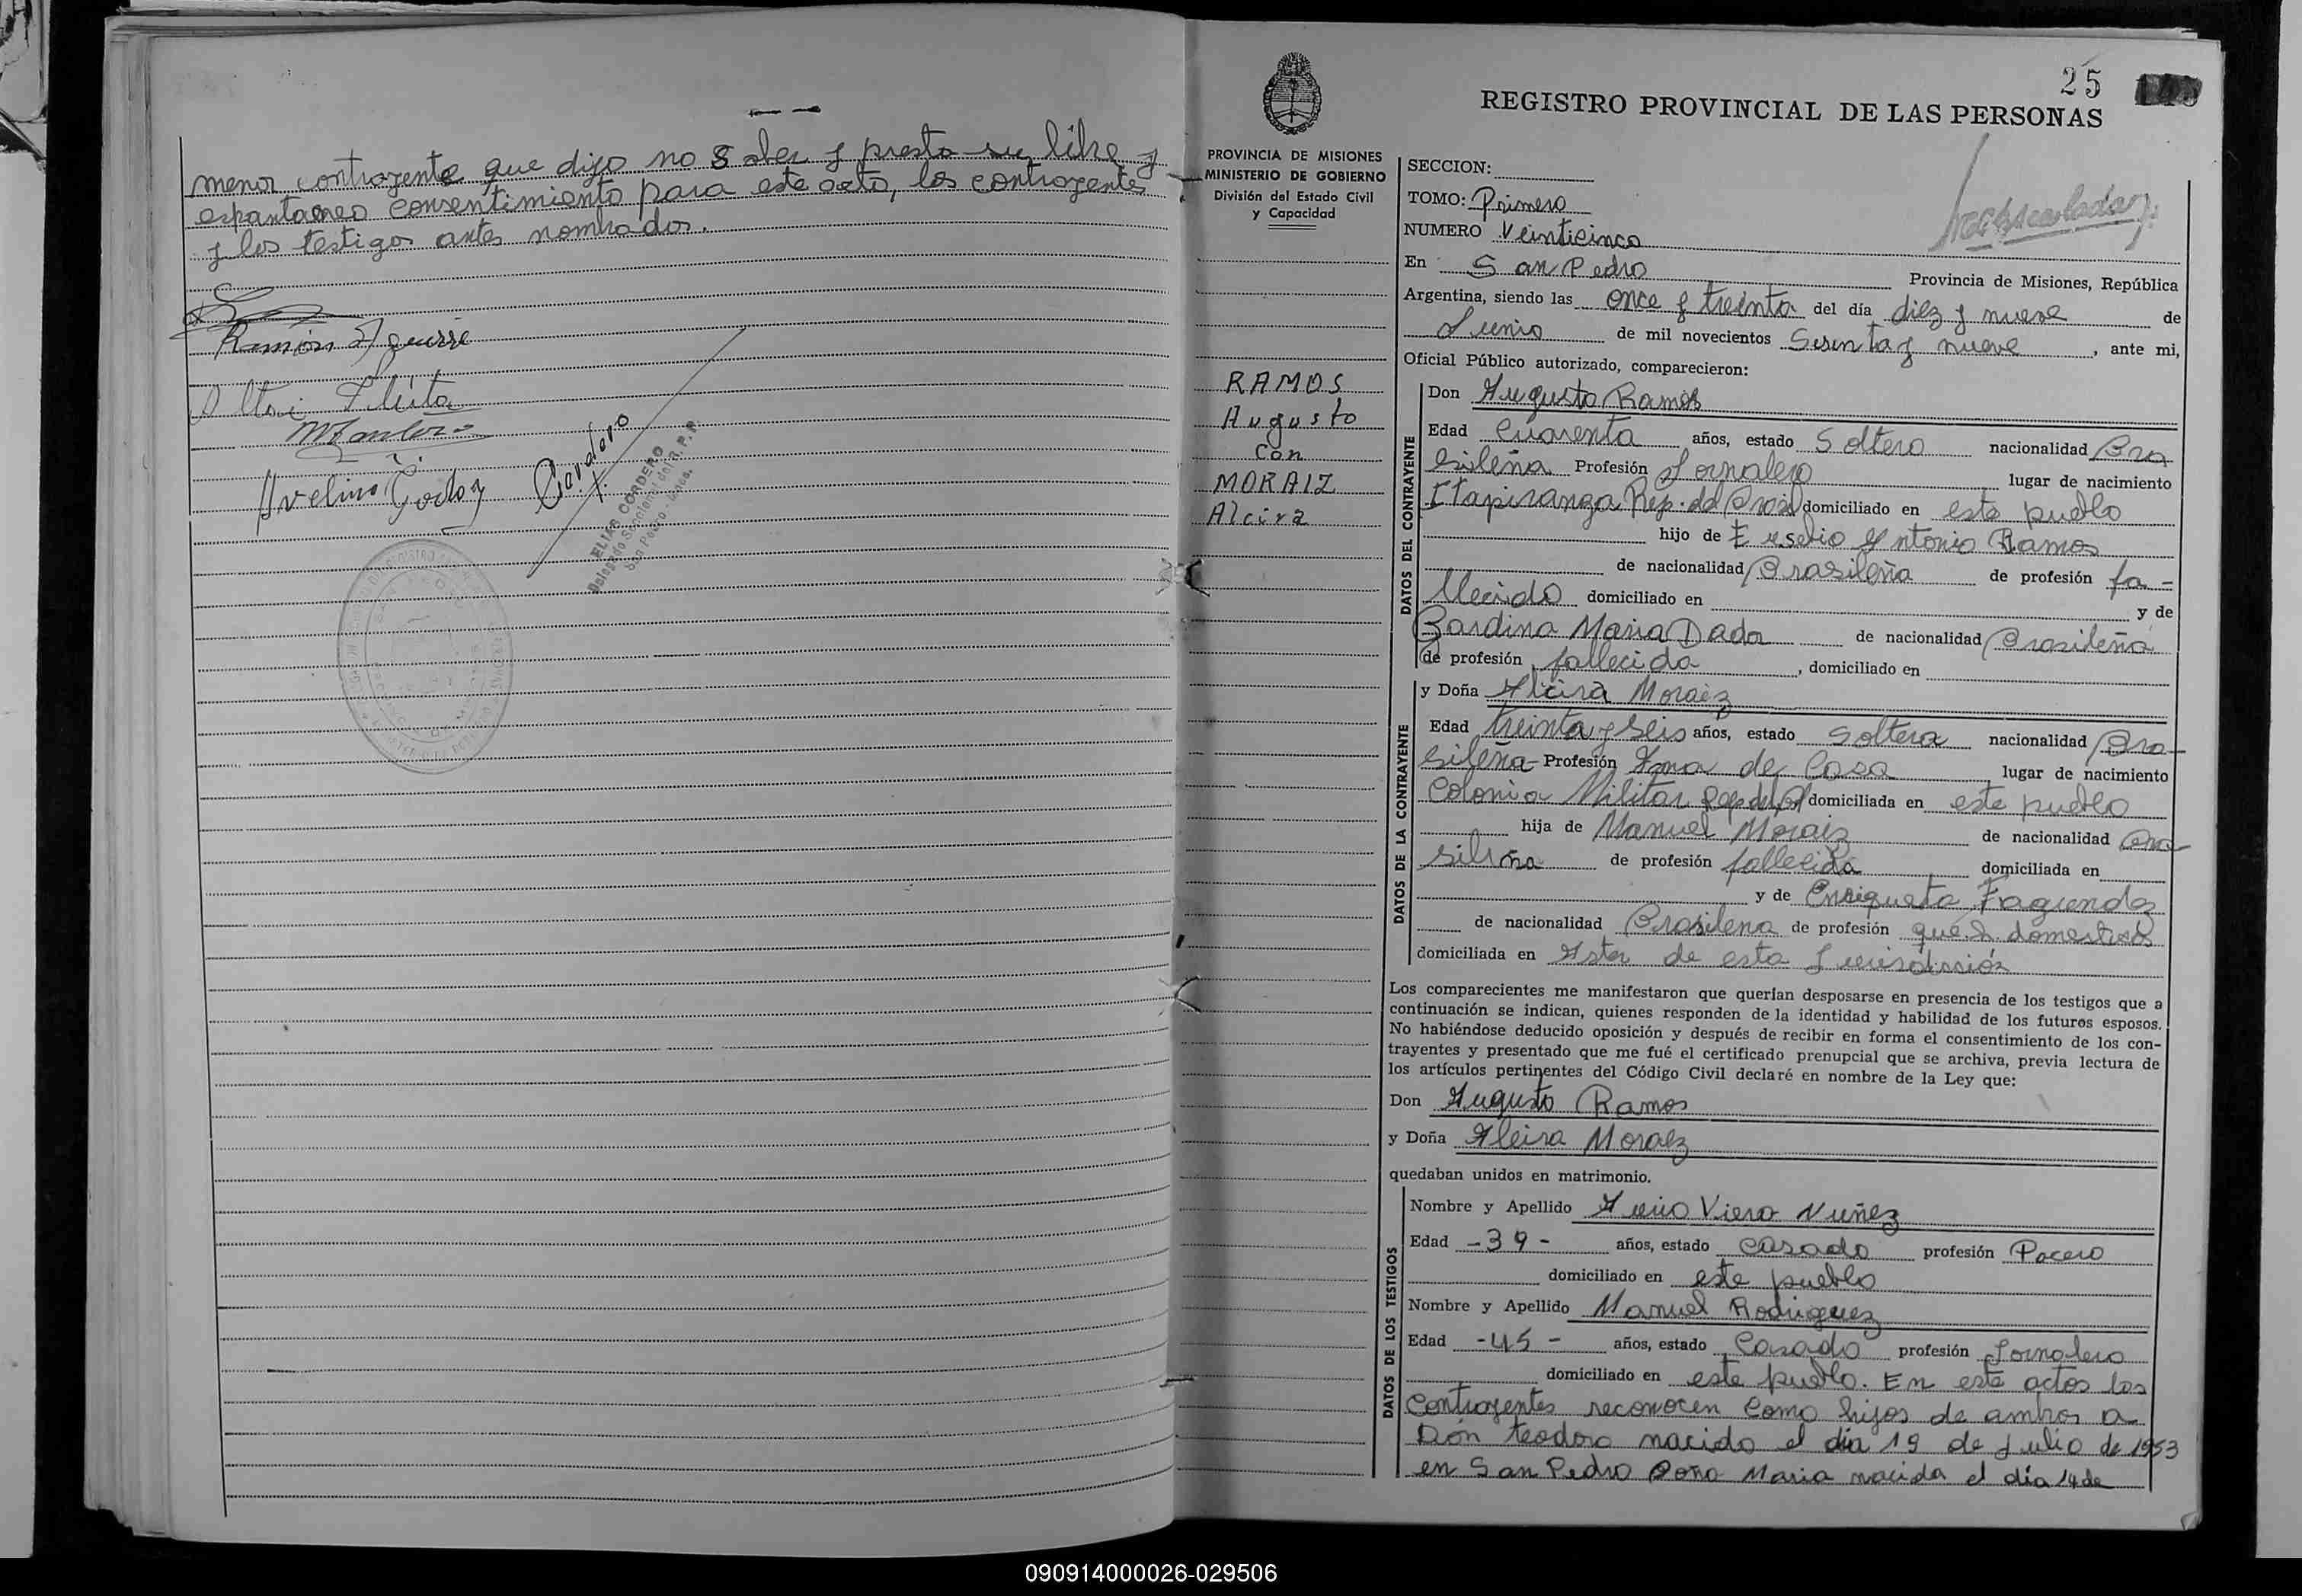 menor contrayente que dijo no Saber y presta su libre y
espontaneo consentimiento para este acto, los contrayentes
y los testigos antes nombrados.
Ramón Aguirre
Avelino Godoy
Cordero
ELIAS CORDERO
Delegado Seccional del R. P. P.
San Pedro - Mnes.
25
REGISTRO PROVINCIAL DE LAS PERSONAS
PROVINCIA DE MISIONES
MINISTERIO DE GOBIERNO
División del Estado Civil
y Capacidad
RAMOS
Augusto
Con
MORAIZ
Alcira
SECCION:
TOMO: Primero
NUMERO Veinticinco
En San Pedro Provincia de Misiones, República
Argentina, siendo las once y treinta del día diez y nueve de
Junio de mil novecientos Sesenta y nueve, ante mi,
Oficial Público autorizado, comparecieron:
DATOS DEL CONTRAYENTE
Don Augusto Ramos
Edad Cuarenta años, estado Soltero nacionalidad Bra
sileña Profesión Jornalero lugar de nacimiento
Itapiranga Rep. del Brasil domiciliado en este pueblo
hijo de Eusebio Antonio Ramos
de nacionalidad Brasileña de profesión fa-
llecido domiciliado en y de
Maria Dada de nacionalidad Brasileña
de profesión fallecida, domiciliado en
DATOS DE LA CONTRAYENTE
y Doña Alcira Moraiz
Edad treinta y seis años, estado Soltera nacionalidad Bra-
sileña- Profesión Ama de Casa lugar de nacimiento
Colonia Militar Rep del domiciliada en este pueblo
hija de Manuel Moraiz de nacionalidad Bra
sileña de profesión fallecido domiciliada en
y de Enriqueta Fagundez
de nacionalidad Brasilena de profesión domesticos
domiciliada en de esta Jurisdicción
Los comparecientes me manifestaron que querían desposarse en presencia de los testigos que a
continuación se indican, quienes responden de la identidad y habilidad de los futuros esposos.
No habiéndose deducido oposición y después de recibir en forma el consentimiento de los con-
trayentes y presentado que me fué el certificado prenupcial que se archiva, previa lectura de
los artículos pertinentes del Código Civil declaré en nombre de la Ley que:
Don Augusto Ramos
y Doña Alcira Moraiz
quedaban unidos en matrimonio.
DATOS DE LOS TESTIGOS
Nombre y Apellido Viera Nuñez
Edad -39- años, estado Casado profesión Pocero
domiciliado en este pueblo
Nombre y Apellido Manuel Rodriguez
Edad -45- años, estado Casado profesión Jornalero
domiciliado en este pueblo. En este actos los
Contrayentes reconocen Como hijos de ambos a
Dón teodoro nacido el día 19 de Julio de 1953
en San Pedro Doña Maria nacida el día 14 de
090914000026-029506